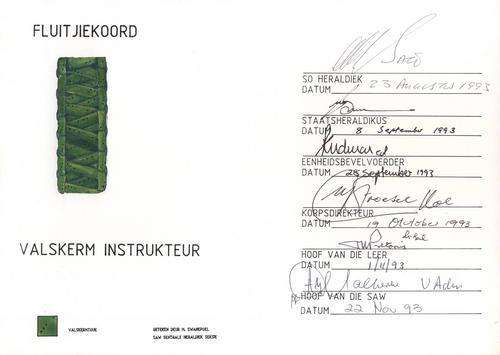 FLUITJIEKOORD
VALSKERM INSTRUKTEUR
VALSKERMTUUR
GETEKEN DEUR M. ZWANEPOEL
SAW SENTRALE HERALDIEK SEKSIE
SO HERALDIEK
DATUM 23 AUGUSTUS 1993
STAATSHERALDIKUS
DATUM 8 September 1993
EENHEIDSBEVELVOERDER
DATUM 28 September 1993
KORPSDIREKTEUR
DATUM 19 Oktober 1993
HOOF VAN DIE LEER
DATUM 1/11/93
HOOF VAN DIE SAW
DATUM 22 Nov 93